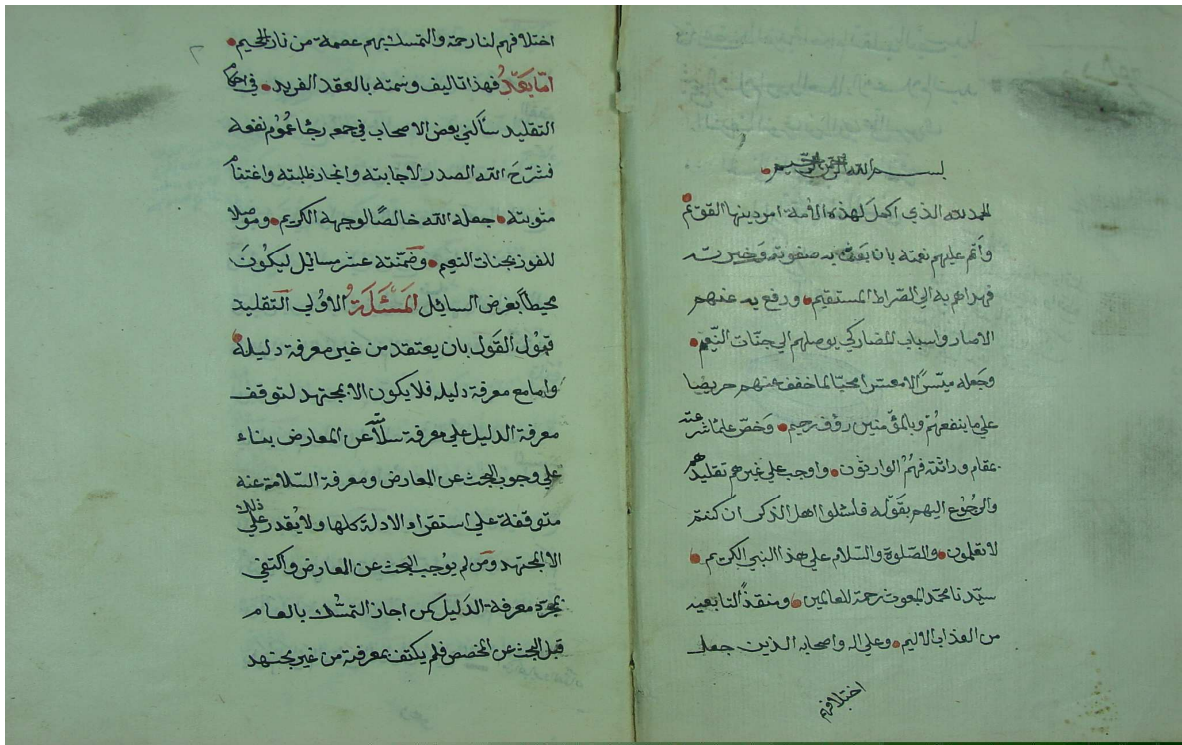 بسم الله الرحمن الرحيم
الحمد لله الذي اكمل لهذه الأمة امر دينها القويم
وأتم عليهم نعمته بان بعث به صفوته وخيرته
فهداهم به الي الصراط المستقيم ورفع به عنهم
الاصار واسباب المضار كي يوصلهم الي جنات النعيم
وجعله ميسرا لا معسرا محبا لما خفف عنهم حريصا
علي ما ينفعهم وبالمؤمنين رؤف رحيم وخص علماء شرعته
بمقام وراثته فهم الوارثون واوجب علي غيرهم تقليدهم
والرجوع اليهم بقوله فاسئلوا اهل الذكر ان كنتم
لا تعلمون والصلوة والسلام علي هذا النبي الكريم
سيدنا محمد المبعوث رحمة للعالمين ومنقذا لتابعيه
من العذاب الاليم وعلي اله واصحابه الذين جعل
اختلافهم
اختلافهم لنا رحمة والتمسك بهم عصمة من نار الجحيم
امّا بعد فهذا تاليف وسمته بالعقد الفريد في احكام
التقليد سألني بعض الاصحاب في جمعه رجا عموم نفعه
فشرح الله الصدر لاجابته وانجاز طلبته واغتنام
مثوبته جعله الله خالصا لوجهه الكريم وموصلا
للفوز بجنات النعيم وضمنته عشر مسائل ليكون
محيطا بغرض السائل المسئلة الاولي التقليد
قبول القول بان يعتقد من غير معرفة دليله
واما مع معرفة دليله فلا يكون الا لمجتهد لتوقف
معرفة الدليل علي معرفة سلامته عن المعارض بناء
علي وجوب البحث عن المعارض ومعرفة السلامة عنه
متوقفة علي استقراء الادلة كلها ولا يقدر علي ذلك
الا المجتهد ومن لم يوجب البحث عن المعارض واكتفي
بمجرد معرفة الدليل كمن اجاز التمسك بالعام
قبل البحث عن المخصص فلم يكتف بمعرفة من غير مجتهد